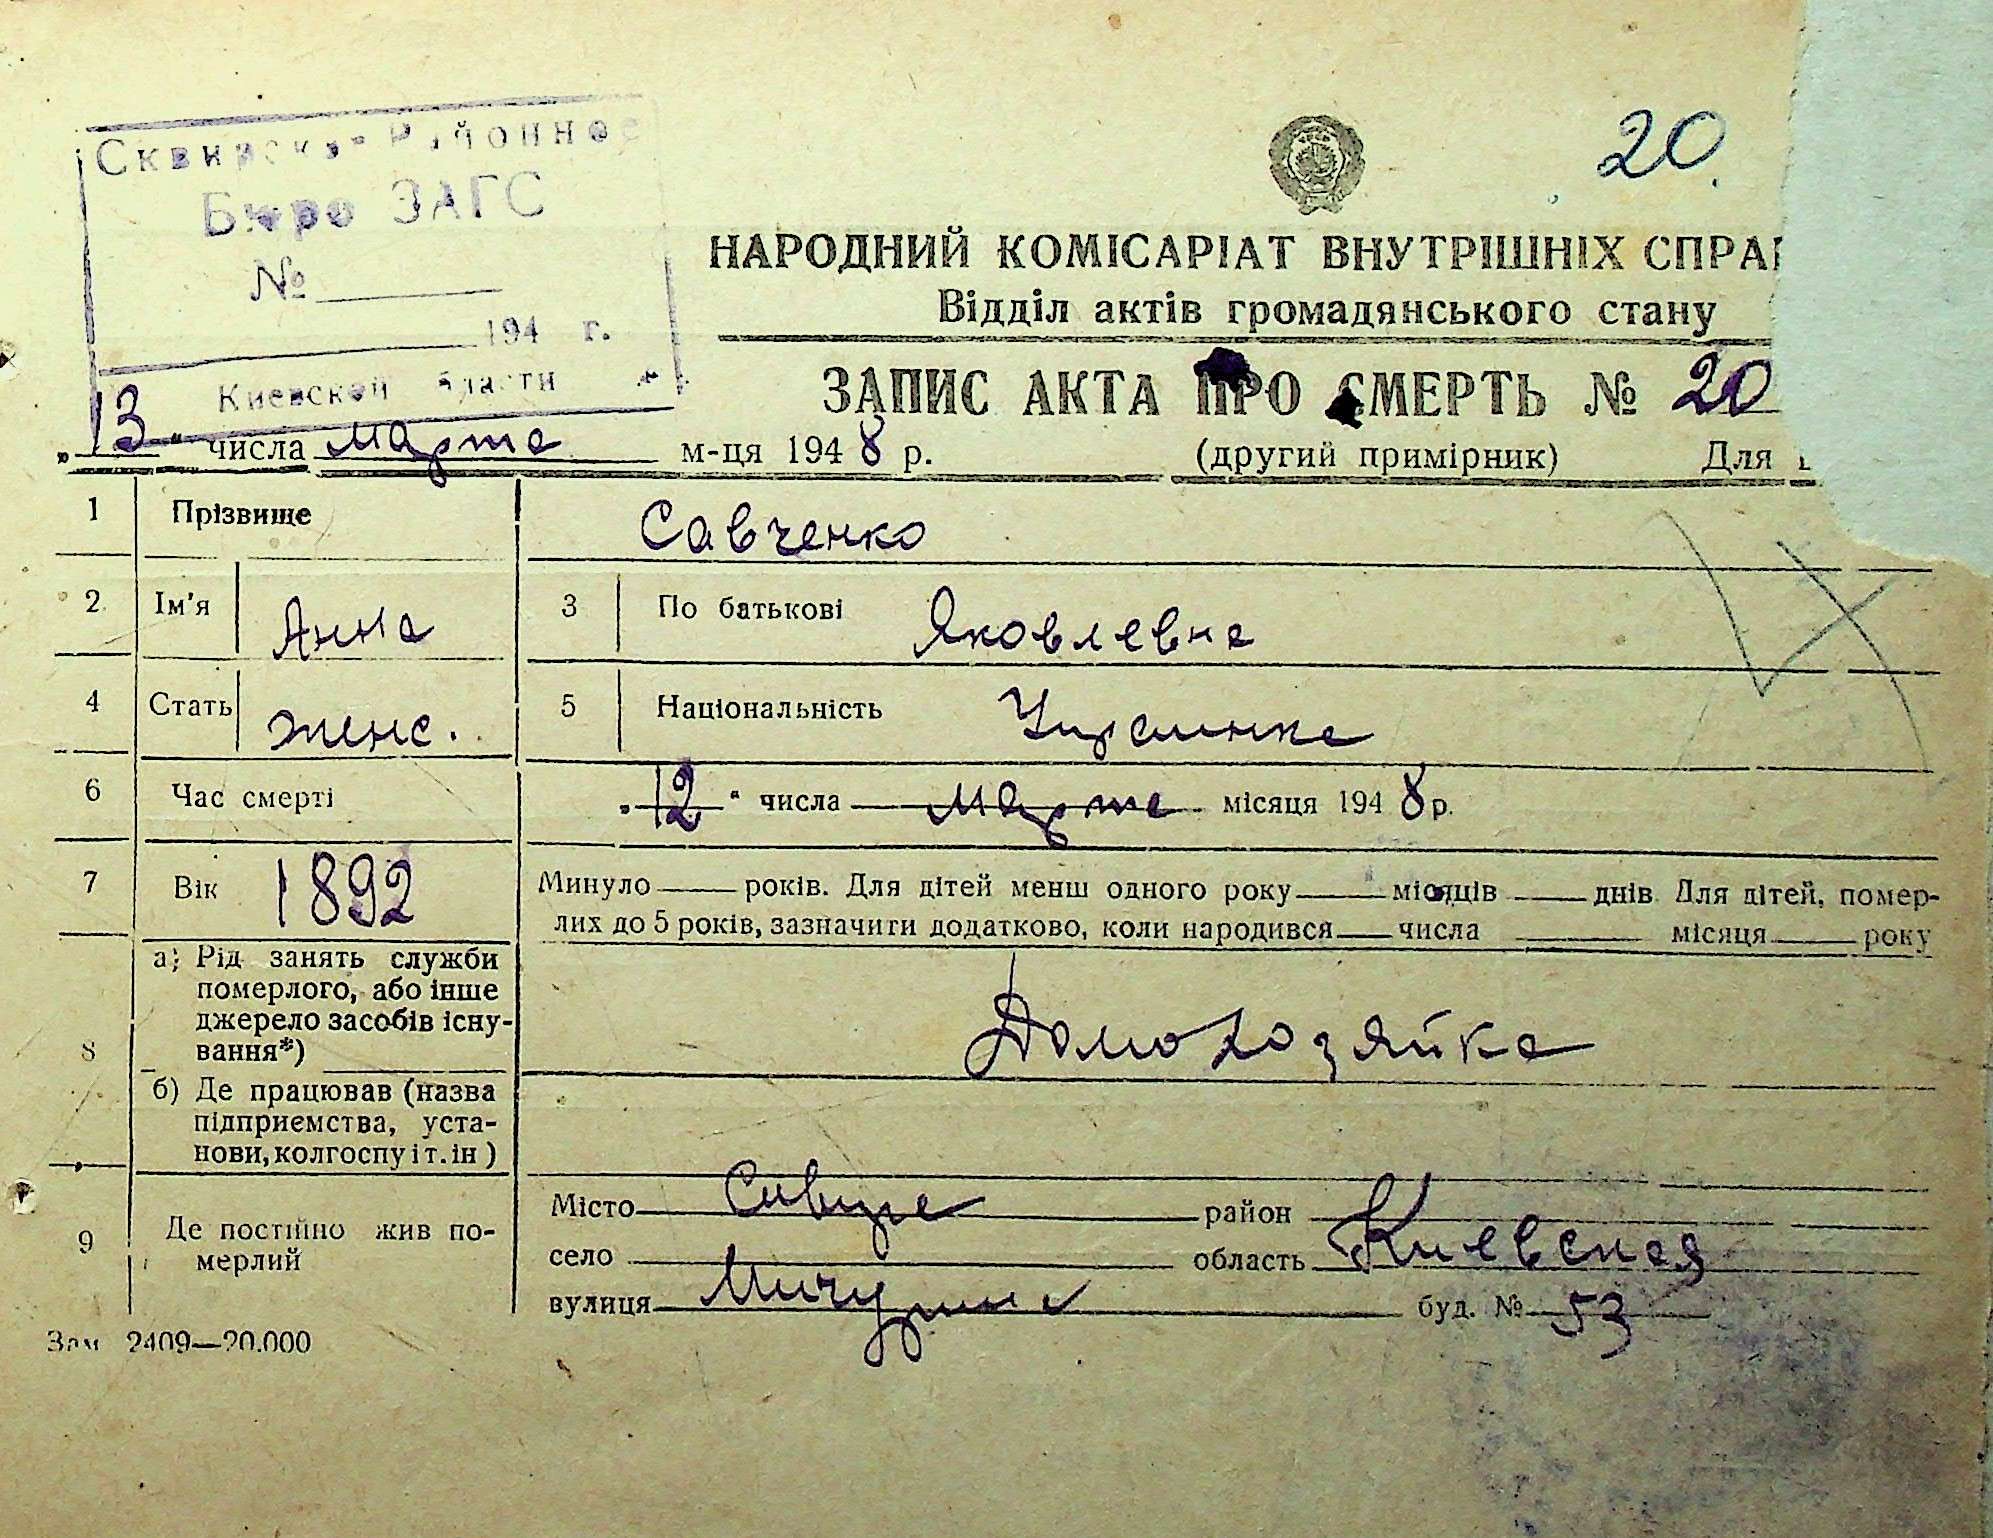 Сквирское Районное
Бюро ЗАГС
№
194 г.
Киевской области
20
НАРОДНИЙ КОМІСАРІАТ ВНУТРІШНІХ СПРА
Відділ актів громадянського стану
ЗАПИС АКТА ПРО СМЕРТЬ № 20
„13“ числа марта м-ця 1948 р. (другий примірник) Для
1 Прізвище Савченко
2 Ім'я Анна 3 По батькові Яковлевна
4 Стать женс. 5 Національність Украинка
6 Час смерті „12“ числа марта місяця 1948 р.
7 Вік 1892 Минуло — років. Для дітей менш одного року — місяців — днів Для дітей, помер-
лих до 5 років, зазначити додатково, коли народився — числа — місяця — року
8 а) Рід занять служби
померлого, або інше
джерело засобів існу-
вання*) Домохозяйка
б) Де працював (назва
підприємства, уста-
нови, колгоспу і т. ін )
9 Де постійно жив по-
мерлий
Місто Сквира район
село область Киевская
вулиця Мичурина буд. № 53
Зам 2409—20.000